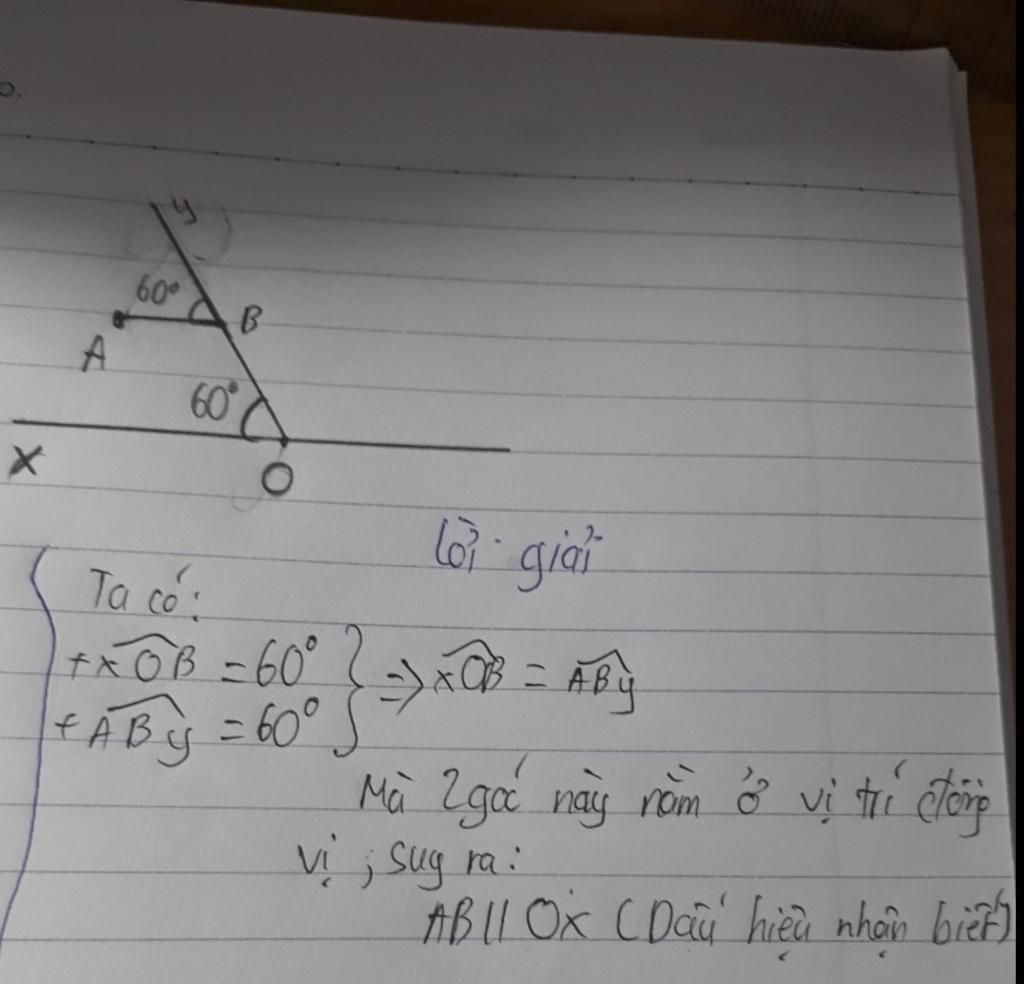 y
60°
B
A
60°
x
O
Lời giải
Ta có:
+ xOB = 60° } => xOB = ABy
+ ABy = 60°
Mà 2 góc này nằm ở vị trí đồng
vị, suy ra:
AB // Ox (Dấu hiệu nhận biết)